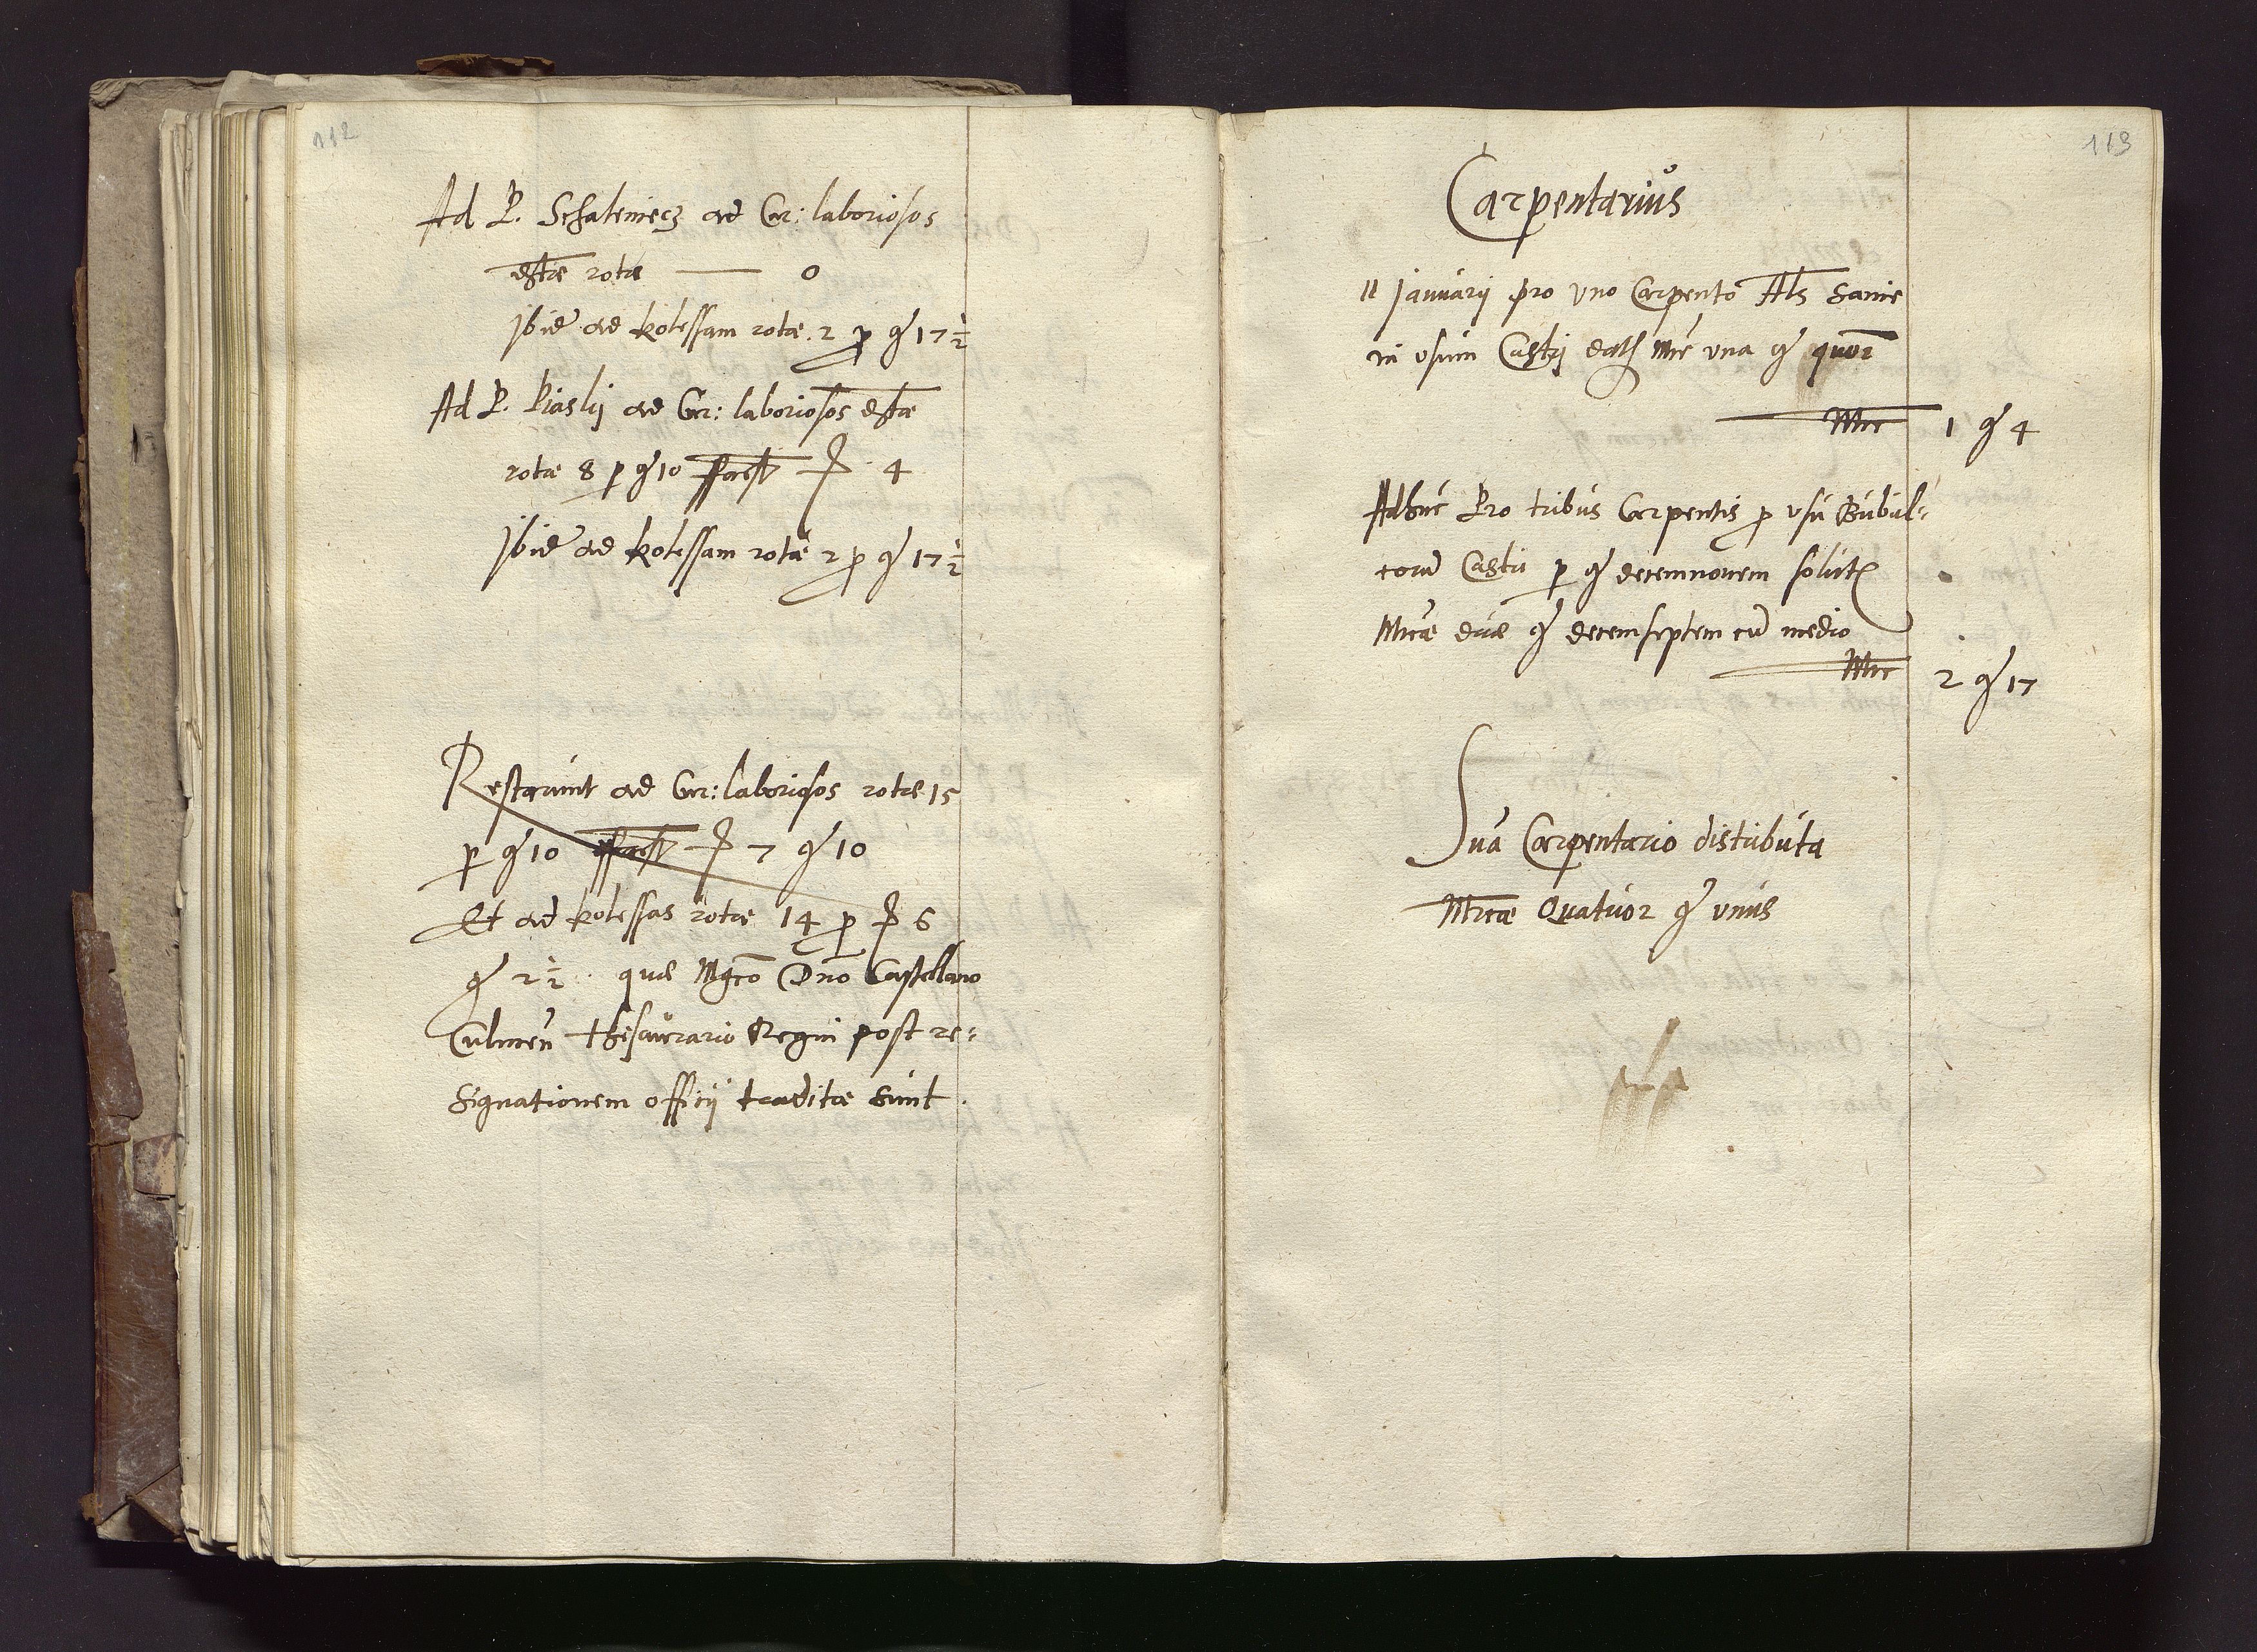 112
Ad P. Schateniecz ad Cur: laboriosos
dstae rotae — 0
Ibid ad kolessam rotae. 2 p gr 17 1/2
Ad P. Piaski ad Cur: laboriosos dstae
rotae 8 p gr 10 ffacit fl 4
Ibid ad kolessam rotae 2 p gr 17 1/2
Restarunt ad Cur: laboriosos rotae 15
p gr 10 ffacit fl 7 gr 10
Et ad kolessas rotae 14 p fl 6
gr 2 1/2. quae Mgco Dno Castellano
Culmen thesaurario Regni post re=
signationem officij traditae sunt.
113
Carpentarius
11 Januarij pro uno Carpento Als Sanie
in usum Castri dats Mrc una gr quor
Mrc 1 gr 4
Adhuc Pro tribus Carpentis p usu Bubul=
corum Castri p gr decemnovem solut
Mrcae duae gr decemseptem cum medio
Mrc 2 gr 17
Sua Carpentario distributa
Mrcae Quatuor gr unus